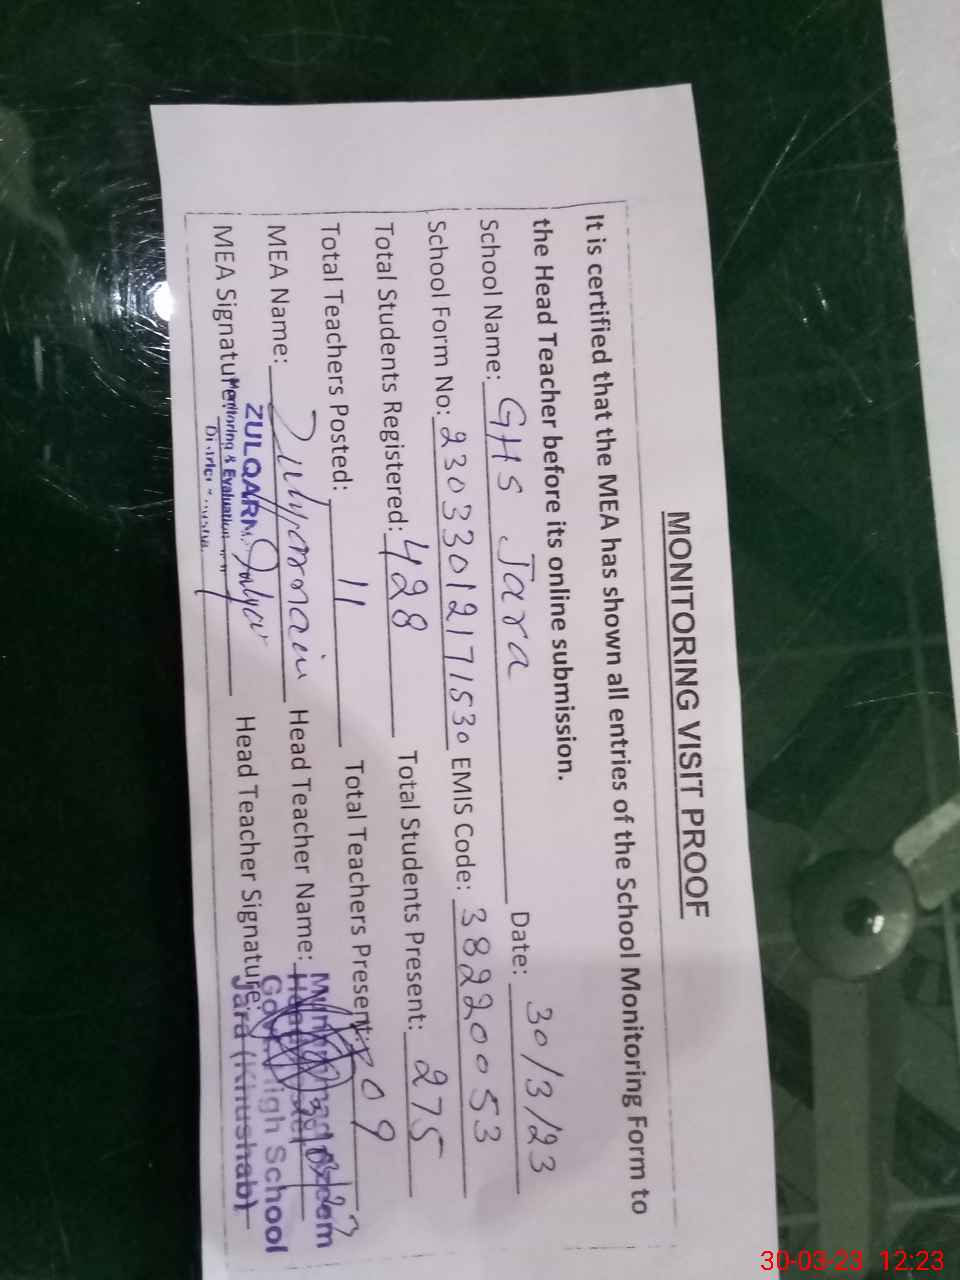 MONITORING VISIT PROOF
It is certified that the MEA has shown all entries of the School Monitoring Form to
the Head Teacher before its online submission.
School Name: GHS Jara Date: 30/3/23
School Form No: 23033012171530 EMIS Code: 38220053
Total Students Registered: 428 Total Students Present: 275
Total Teachers Posted: 11 Total Teachers Present: 09
MEA Name: Zulqarnain Head Teacher Name:
MEA Signature: Head Teacher Signature:
ZULQARN
Monitoring & Evaluation
Govt. High School
Jara (Khushab)
30-03-23 12:23